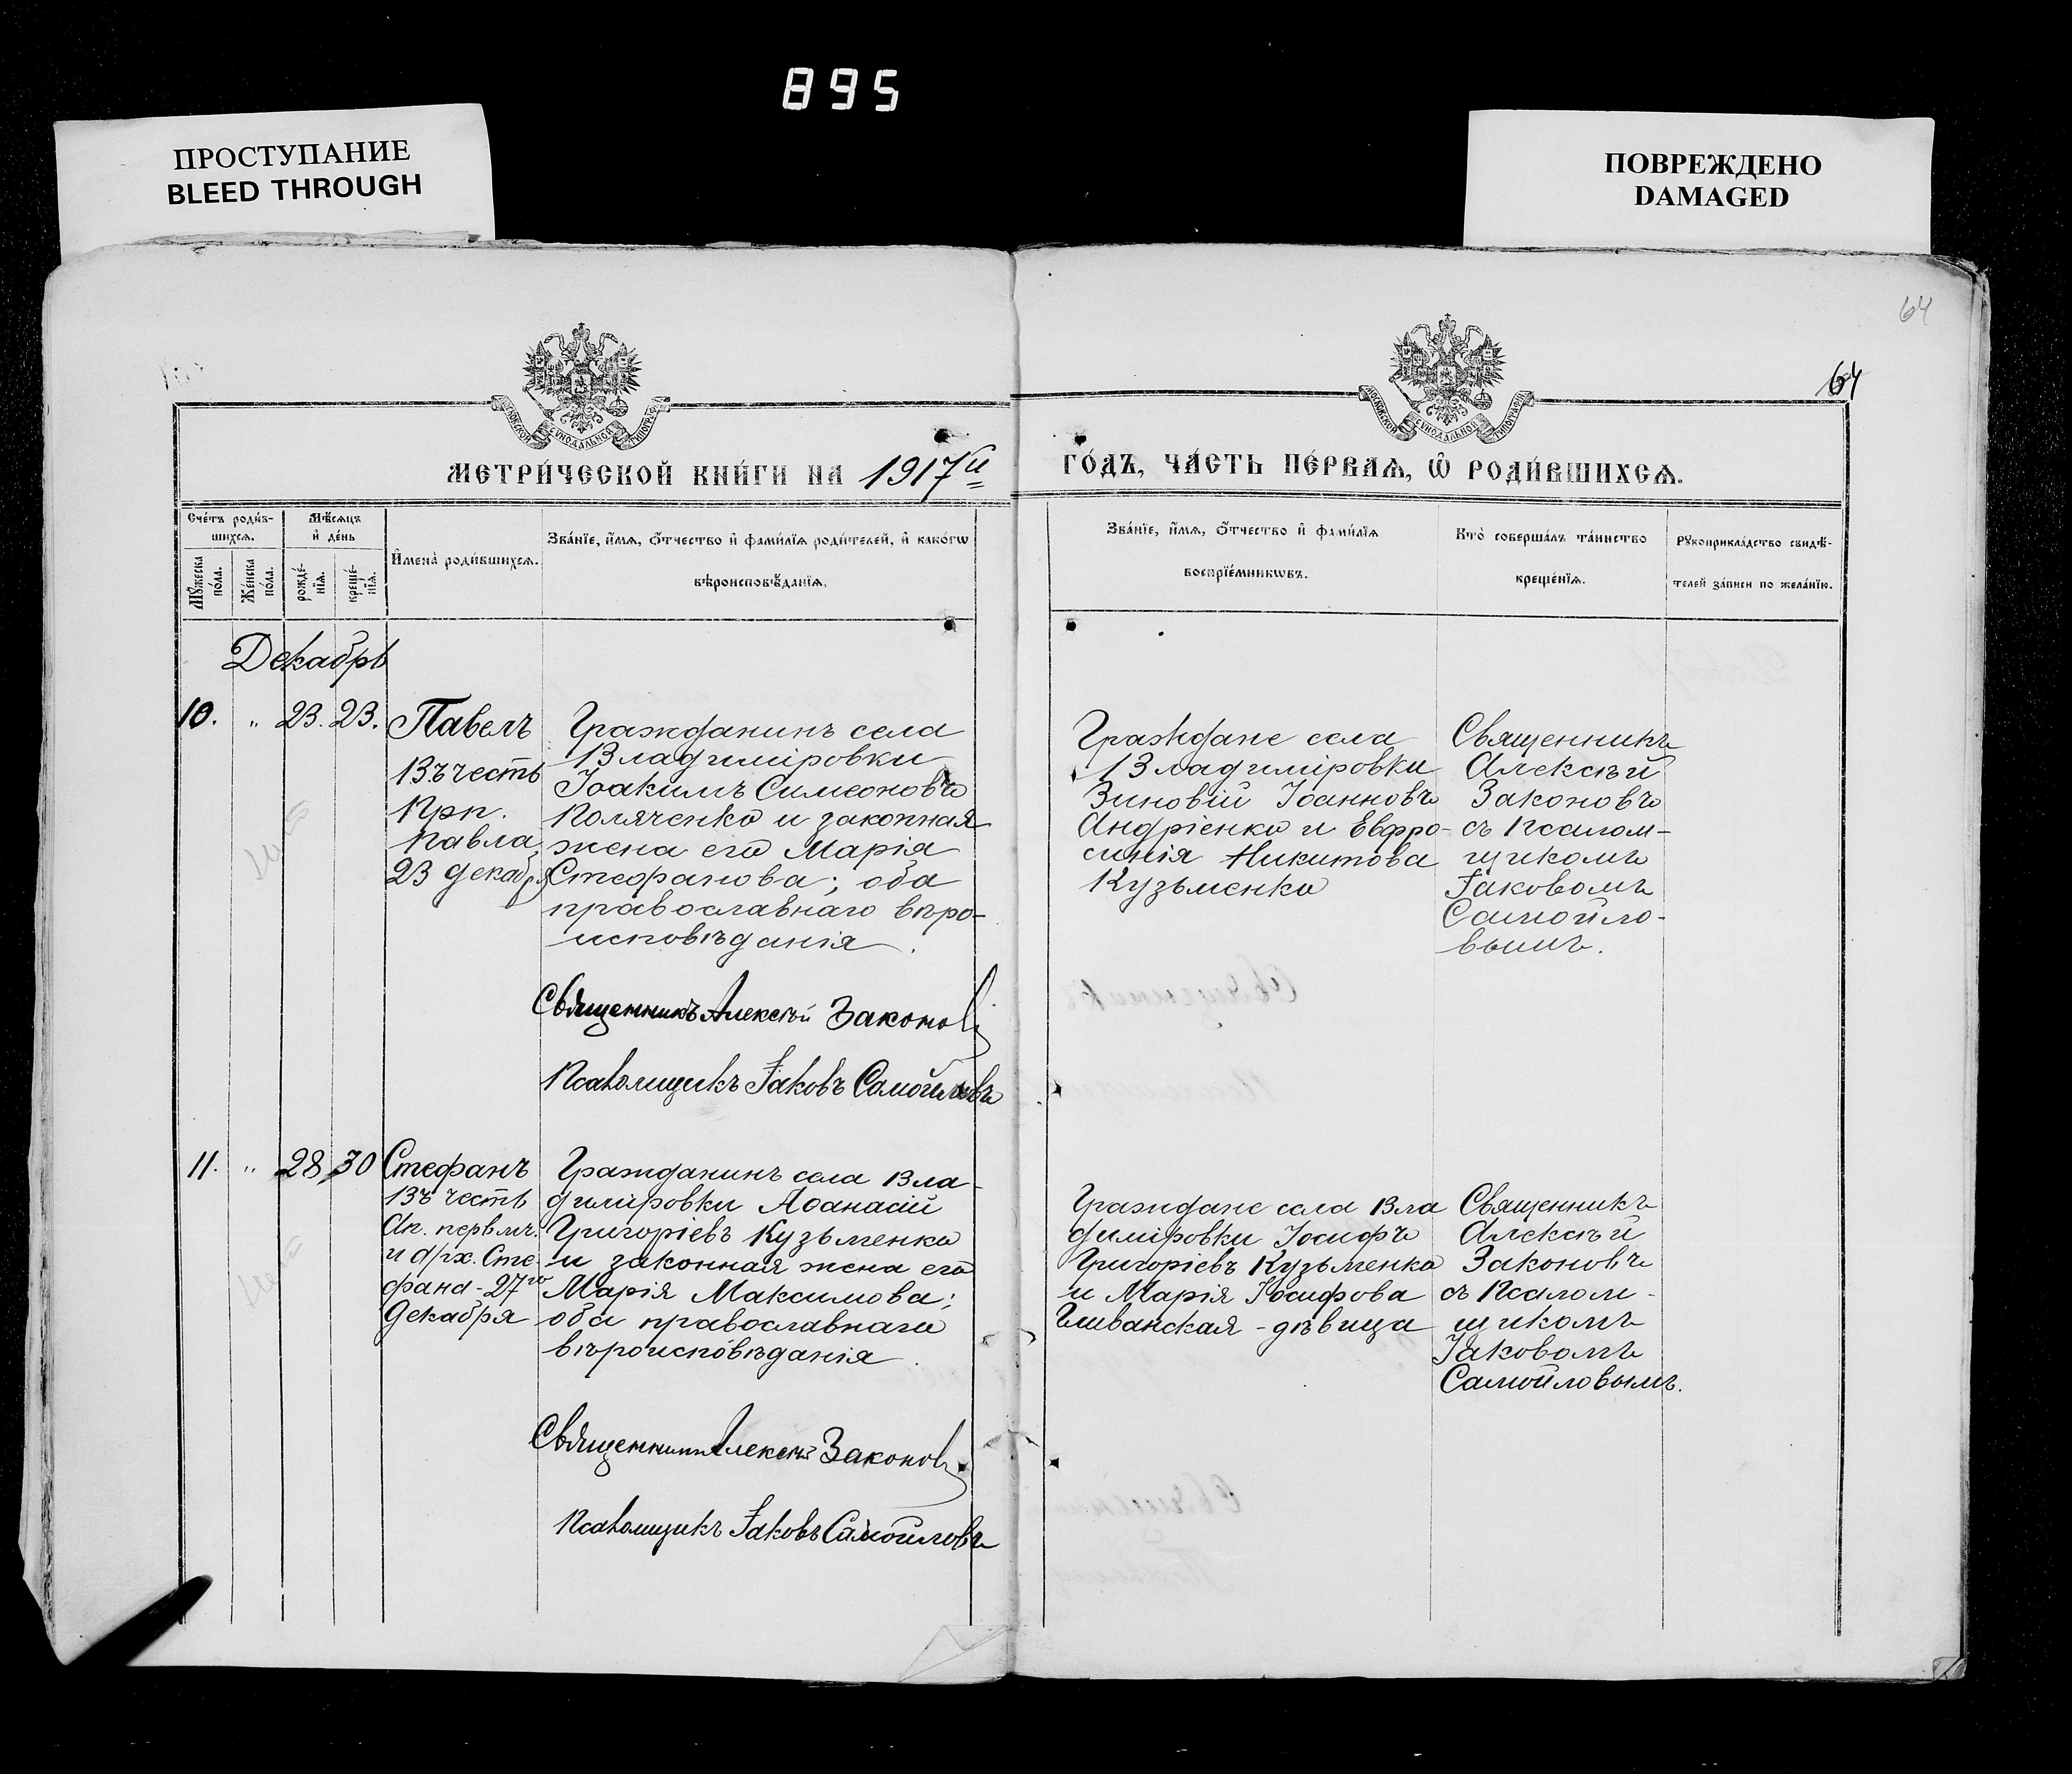 895
ПРОСТУПАНИЕ
BLEED THROUGH
ПОВРЕЖДЕНО
DAMAGED
64
64
МЕТРИ́ЧЕСКОЙ КНИ́ГИ НА 1917й
ГО́ДЪ, ЧА́СТЬ ПЕ́РВАѦ, Ѡ҆ РОДИ́ВШИХСѦ.
Сче́тъ роди́в-
шихсѧ.
Мѣ́сѧцъ
и҆ де́нь
Мꙋ́жеска
по́ла.
Же́нска
по́ла.
рожде́-
нїѧ.
креще́-
нїѧ.
И҆мена̀ роди́вшихсѧ.
Зва́нїе, и҆́мѧ, ѻ҆́тчество и҆ фами́лїѧ роди́телей, и҆ како́гѡ
вѣроисповѣ́данїѧ.
Зва́нїе, и҆́мѧ, ѻ҆́тчество и҆ фами́лїѧ
воспрїе́мникѡвъ.
Кто̀ соверша́лъ та́инство
креще́нїѧ.
Рꙋкоприкла́дство свидѣ́-
телей за́писи по жела́нїю.
Декабрь
10. " 23. 23.
Павелъ
Въ честь
Прп.
Павла,
23 декабря
Гражданинъ села
Владиміровки
Іоакимъ Симеоновъ
Поляченко и законная
жена его Марія
Стефанова; оба
православнаго вѣро-
исповѣданія.
Священникъ Алексѣй Законовъ
Псаломщикъ Іаковъ Самойловъ
Граждане села
Владиміровки
Зиновій Іоанновъ
Андріенко и Евфро-
синія Никитова
Кузьменко
Священникъ
Алексѣй
Законовъ
съ Псалом-
щикомъ
Іаковомъ
Самойло-
вымъ.
11. " 28 30
Стефанъ
Въ честь
Ап. первмч.
и архд. Сте-
фана - 27го
декабря
Гражданинъ села Вла-
диміровки Аѳанасій
Григоріевъ Кузьменко
и законная жена его
Марія Максимова;
оба православнаго
вѣроисповѣданія.
Священникъ Алексѣй Законовъ
Псаломщикъ Іаковъ Самойловъ
Граждане села Вла
диміровки Іосифъ
Григоріевъ Кузьменко
и Марія Іосифова
- дѣвица
Священникъ
Алексѣй
Законовъ
съ Псалом-
щикомъ
Іаковомъ
Самойловымъ.